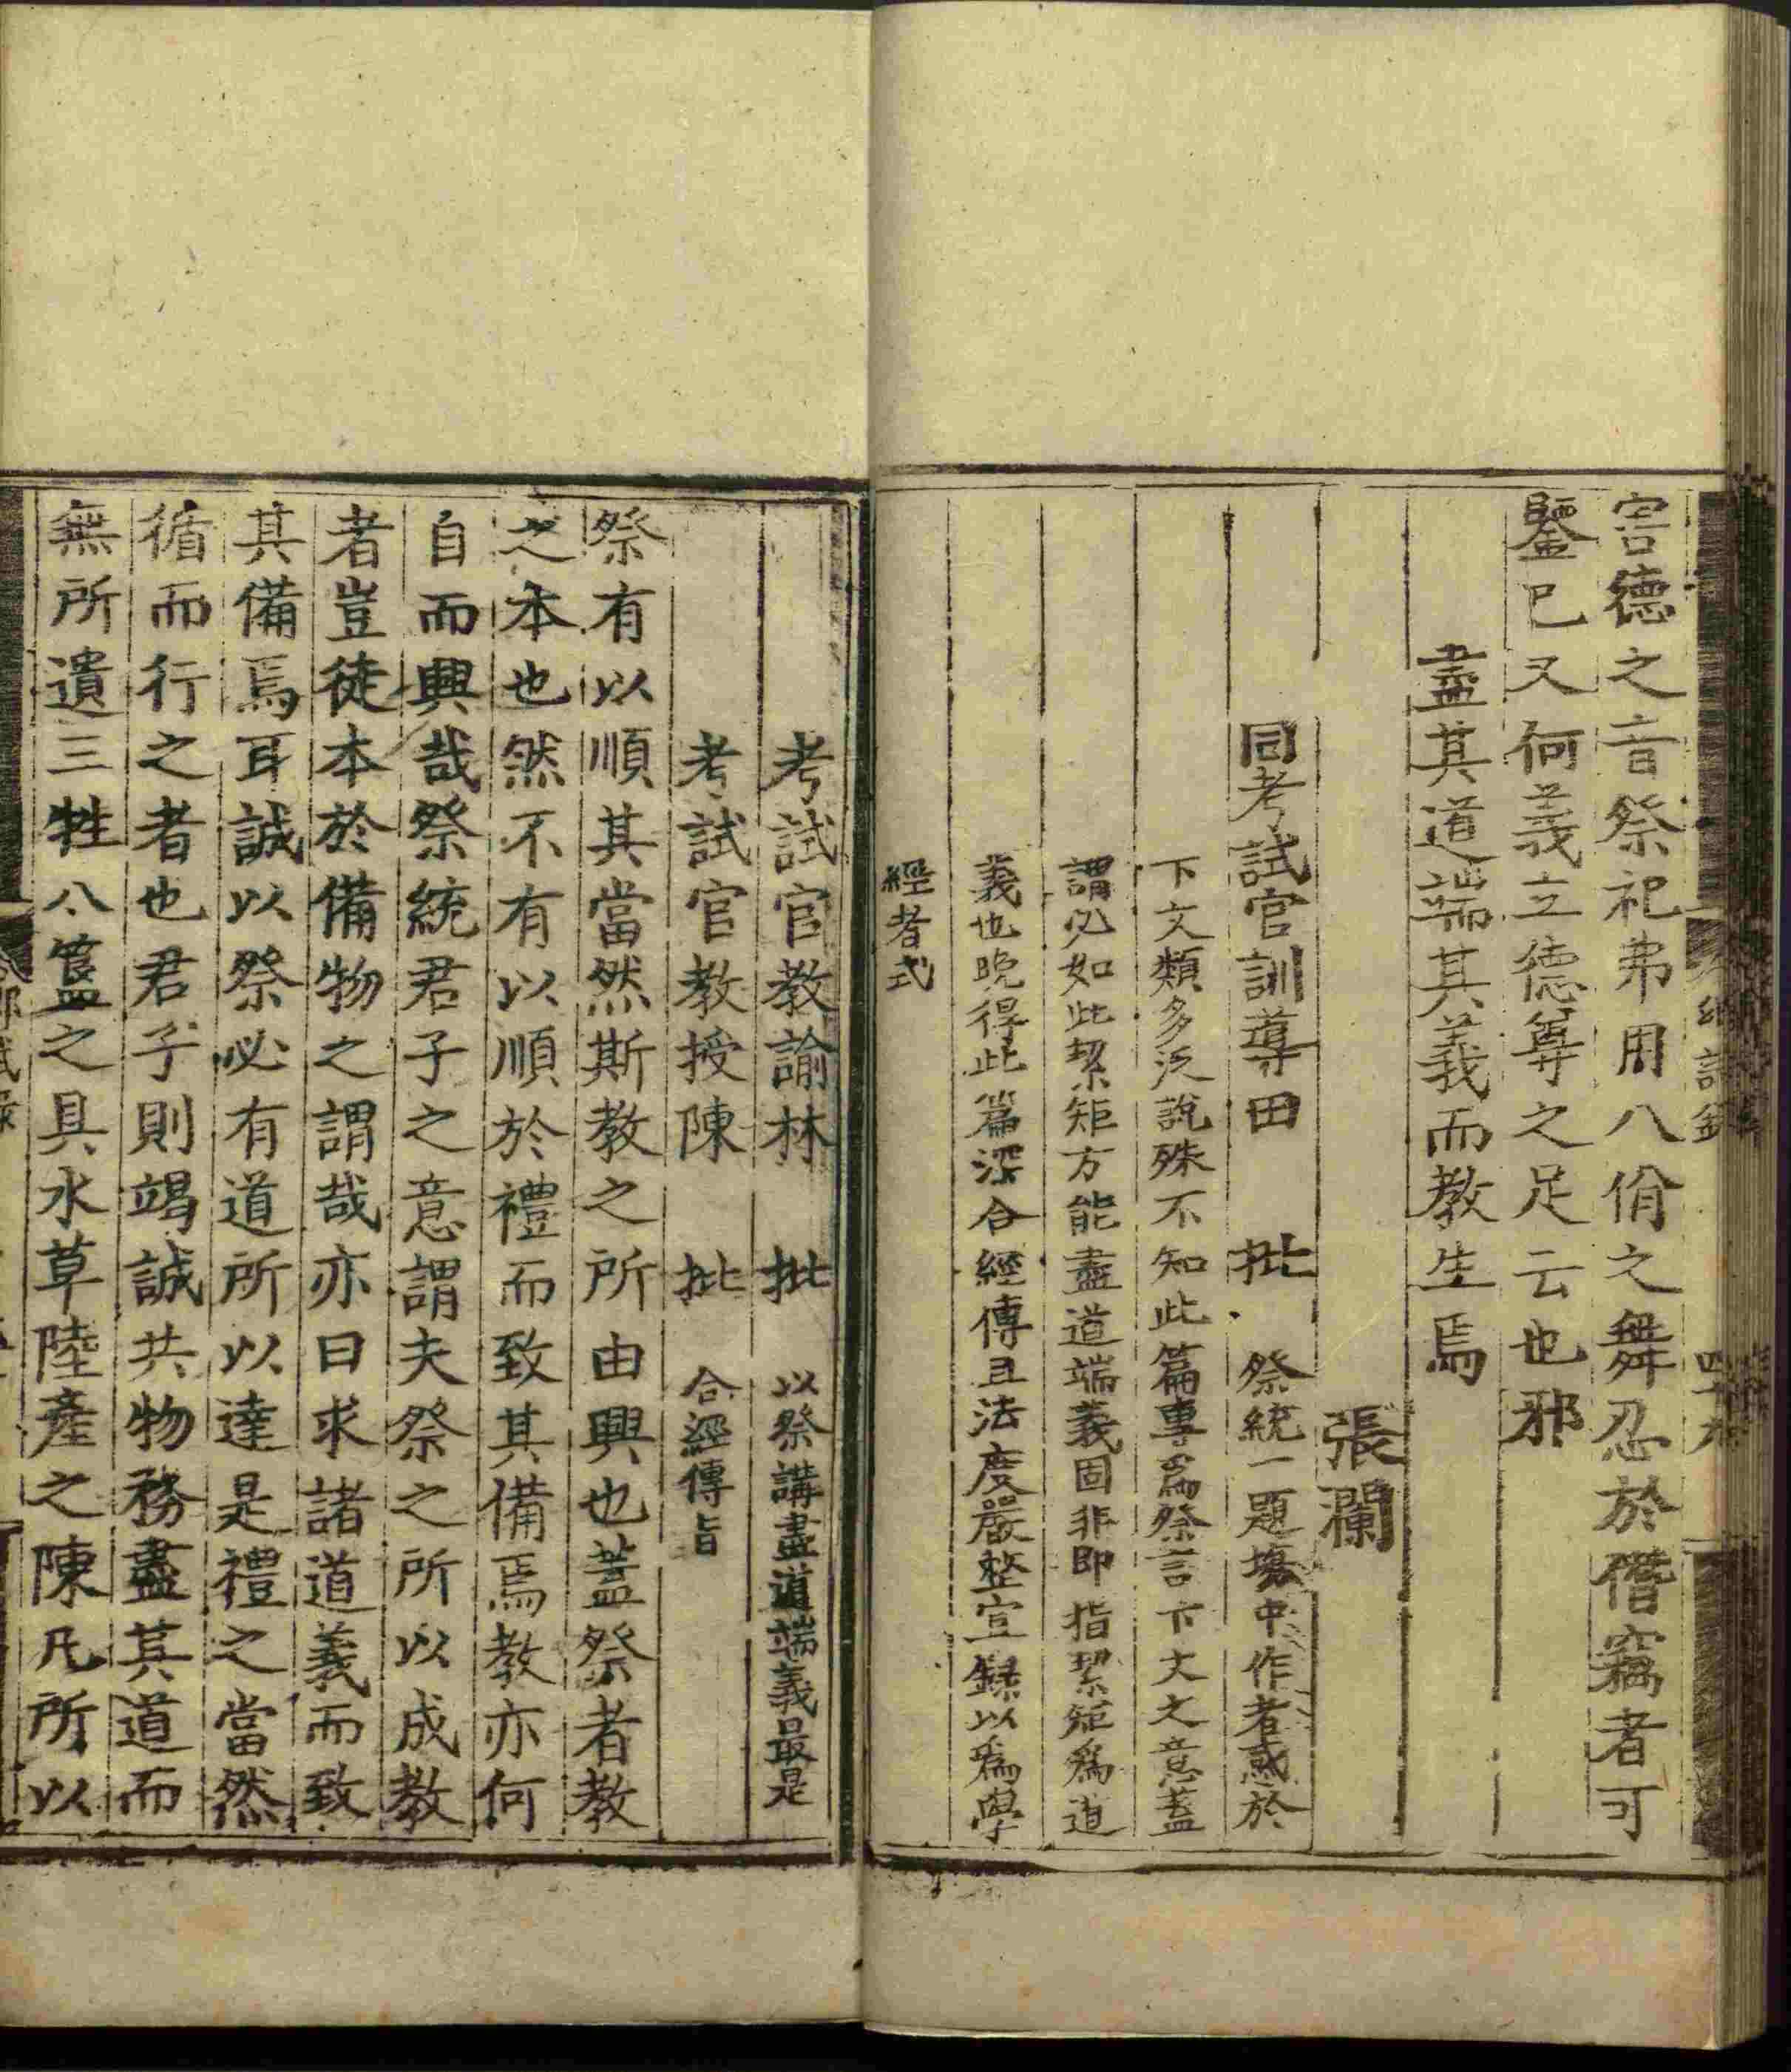 害德之音祭祀弗用八佾之舞忍於僭竊者可
鑒已又何義立德尊之足云也邪
盡其道端其義而教生焉
張瀾
同考試官訓導田 批 祭統一題場中作者惑於
下文類多泛說殊不知此篇專為祭言下文之意蓋
謂必如此絜矩方能盡道端義固非即指絜矩為道
義也晚得此篇深合經傳且法度嚴整宜錄以為學
經者式
考試官教諭林 批 以祭講盡道端義最是
考試官教授陳 批 合經傳旨
祭有以順其當然斯教之所由興也蓋祭者教
之本也然不有以順於禮而致其備焉教亦何
自而興哉祭統君子之意謂夫祭之所以成教
者豈徒本於備物之謂哉亦曰求諸道義而致
其備焉耳誠以祭必有道所以達是禮之當然
循而行之者也君子則竭誠共物務盡其道而
無所遺三牲八簋之具水草陸產之陳凡所以